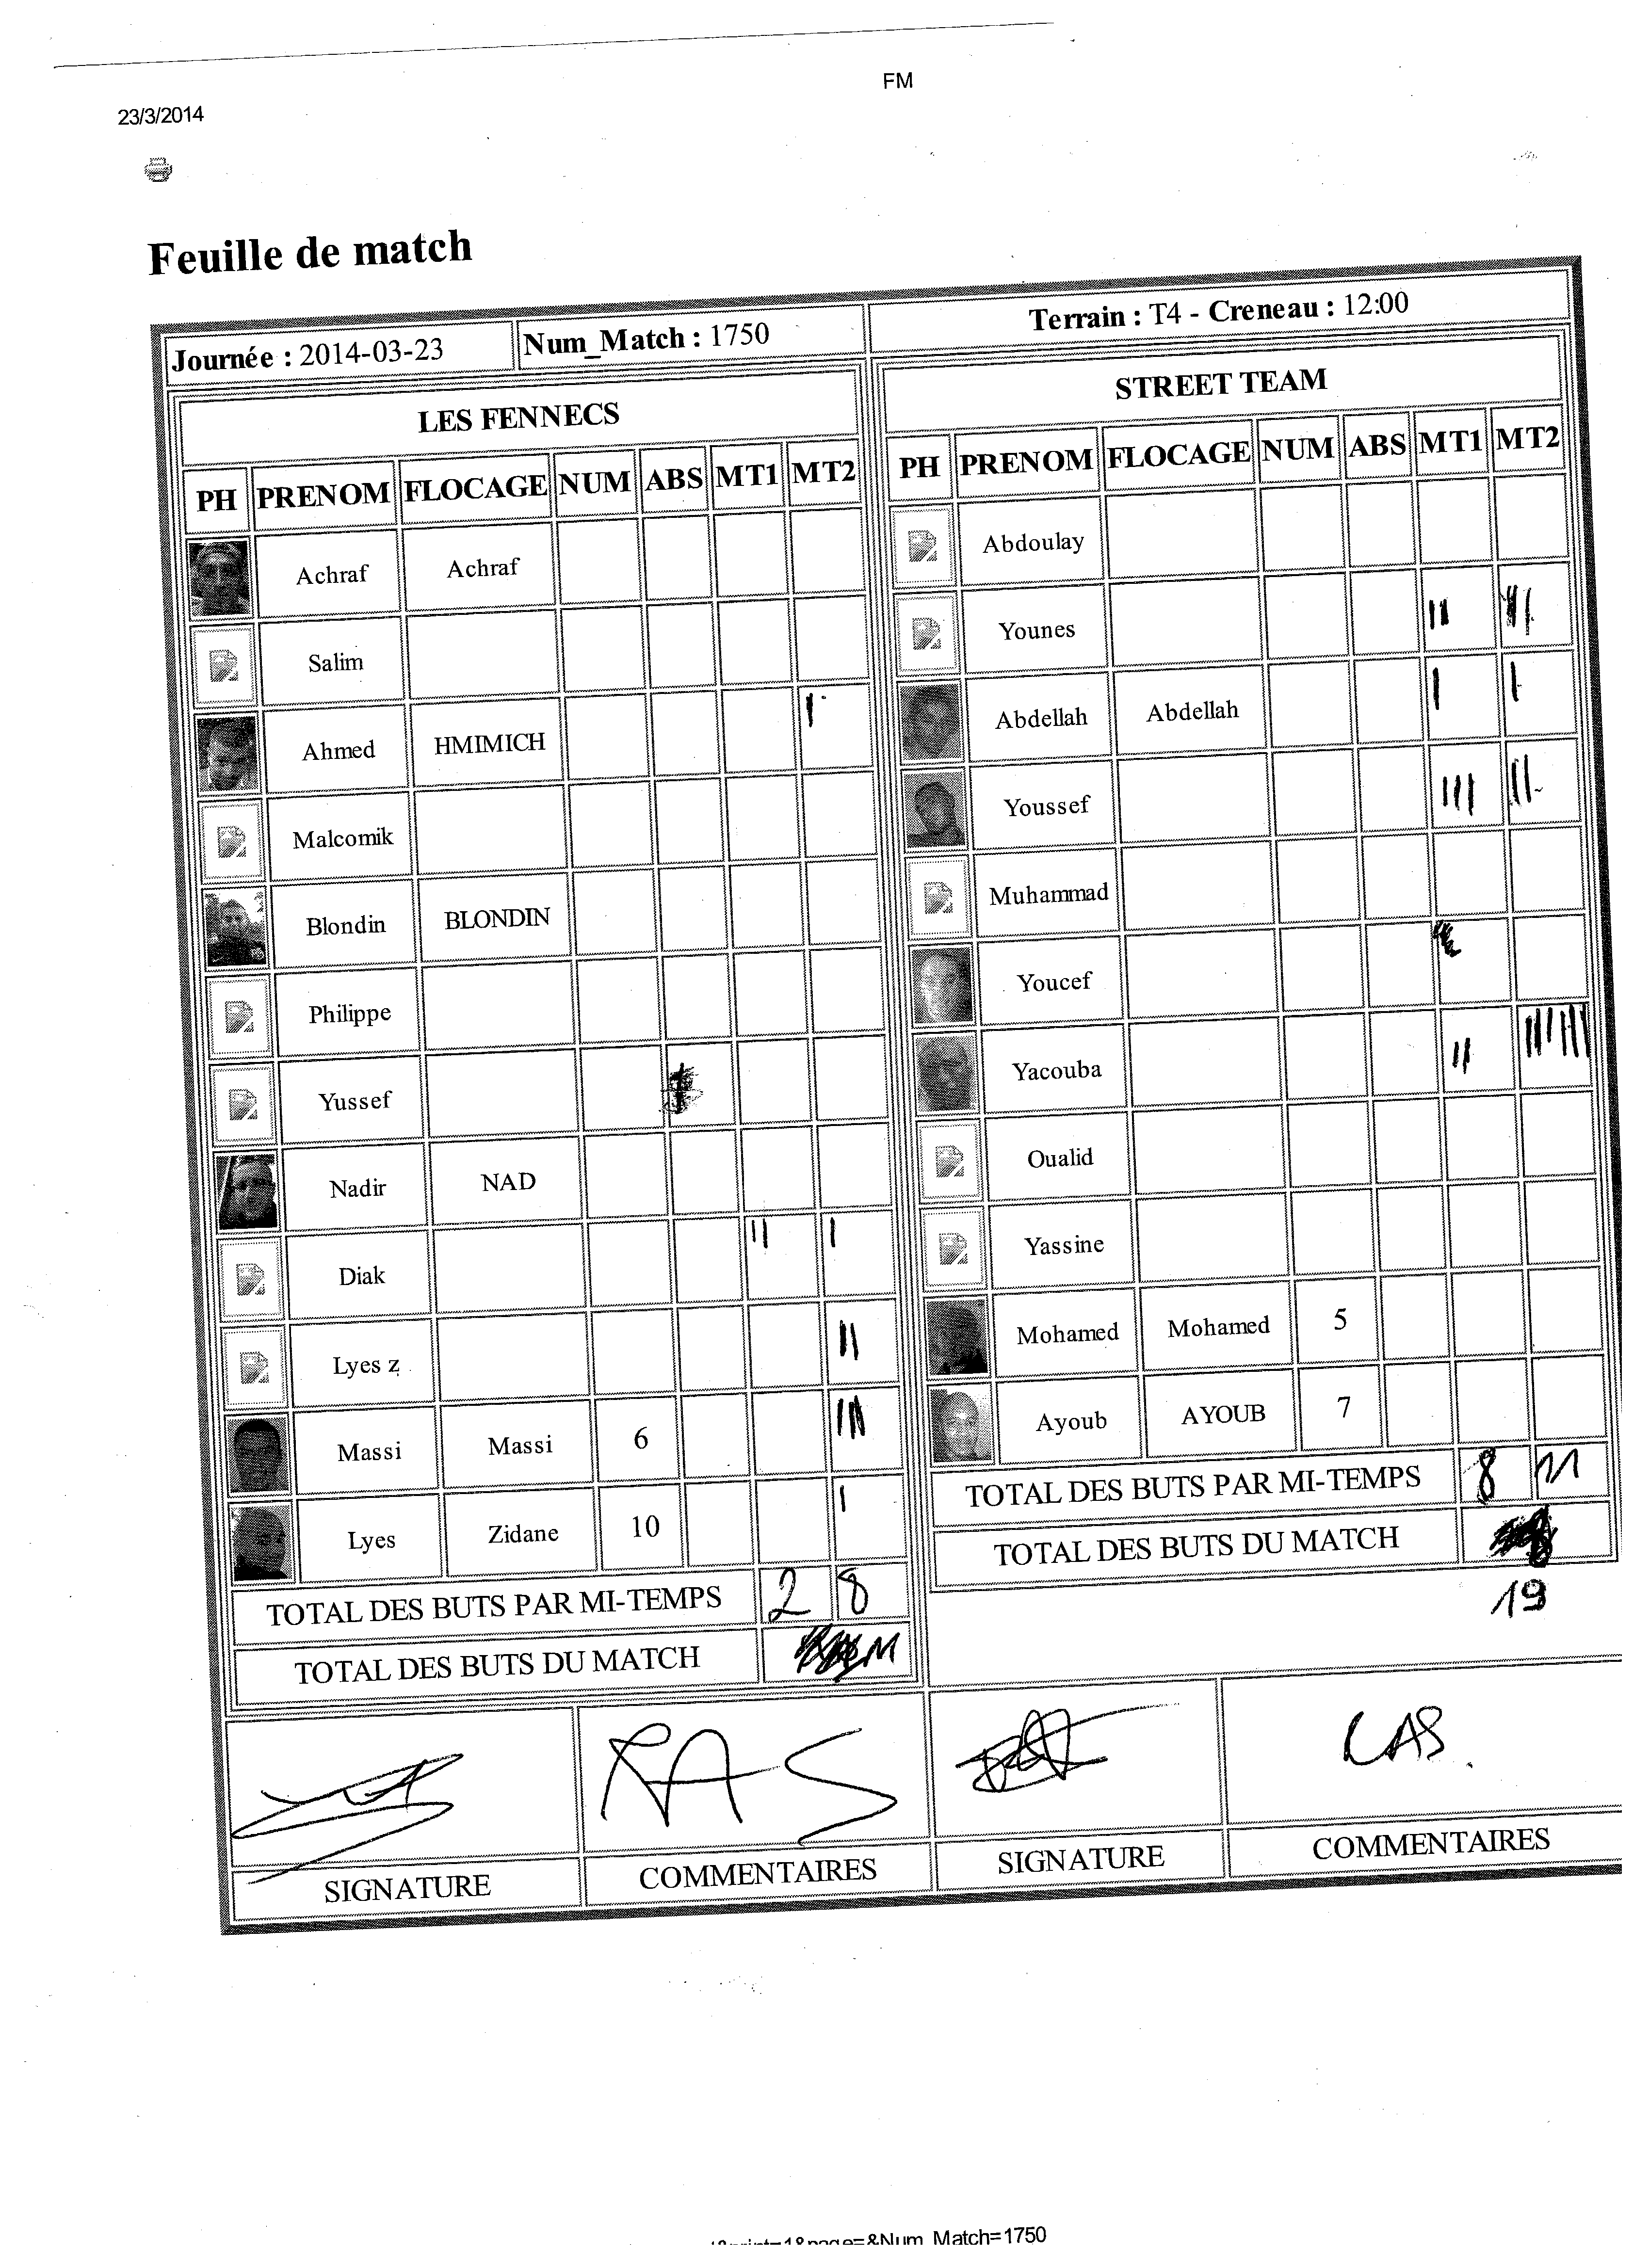 FM
23/3/2014
Feuille de match
Journée : 2014-03-23
Num_Match : 1750
Terrain : T4 - Creneau : 12:00
LES FENNECS
PH PRENOM FLOCAGE NUM ABS MT1 MT2
Achraf Achraf
Salim
Ahmed HMIMICH I
Malcomik
Blondin BLONDIN
Philippe
Yussef
Nadir NAD
Diak II I
Lyes z II
Massi Massi 6 III
Lyes Zidane 10 I
TOTAL DES BUTS PAR MI-TEMPS 2 8
TOTAL DES BUTS DU MATCH
RAS
SIGNATURE COMMENTAIRES
STREET TEAM
PH PRENOM FLOCAGE NUM ABS MT1 MT2
Abdoulay
Younes II
Abdellah Abdellah I I
Youssef III II
Muhammad
Youcef
Yacouba II
Oualid
Yassine
Mohamed Mohamed 5
Ayoub AYOUB 7
TOTAL DES BUTS PAR MI-TEMPS 8 11
TOTAL DES BUTS DU MATCH
19
RAS.
SIGNATURE COMMENTAIRES
=1&page=&Num_Match=1750